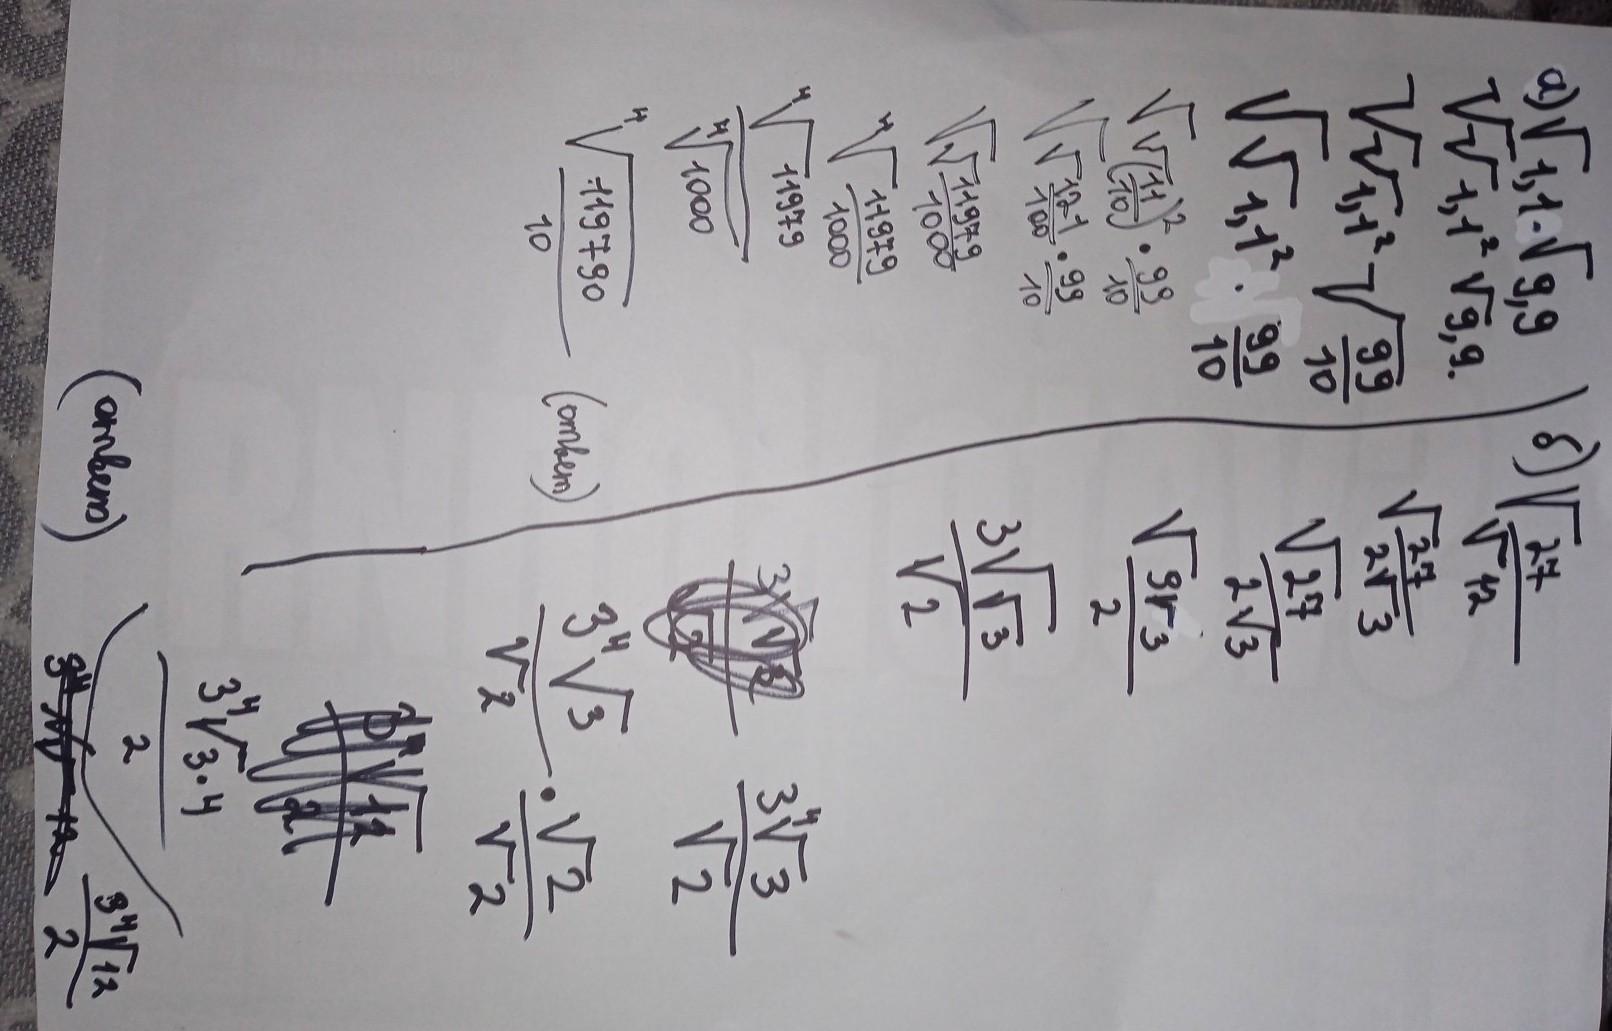 а) √1,1·√9,9
√√1,1² √9,9.
√√1,1² √99/10
√√1,1² · 99/10
√√(11/10)² · 99/10
√√121/100 · 99/10
√√11979/1000
⁴√11979/1000
⁴√11979/⁴√1000
⁴√119790/10 (ответ)
б) √27/√12
√27/2√3
√27/2√3
√9√3/2
3√√3/√2
3⁴√3/√2
3⁴√3/√2 · √2/√2
3⁴√3·4/2
3⁴√12/2
(ответ)